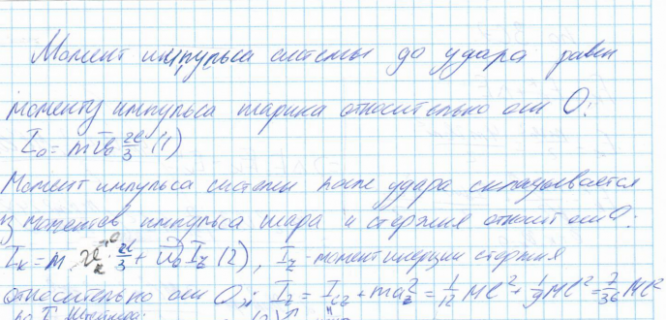 Момент импульса системы до удара равен
моменту импульса шарика относительно оси O:
I₀ = mv₀ 2l/3 (1)
Момент импульса системы после удара складывается
из моментов импульса шара и стержня относит оси O:
Iₖ = m · 2l/3 + I_z (2), I_z - момент инерции стержня
относительно оси O,: I_z = I_cz + ma_z² = 1/12 Ml² + 1/9 Ml² = 7/36 Ml²
по т. Штейнера: